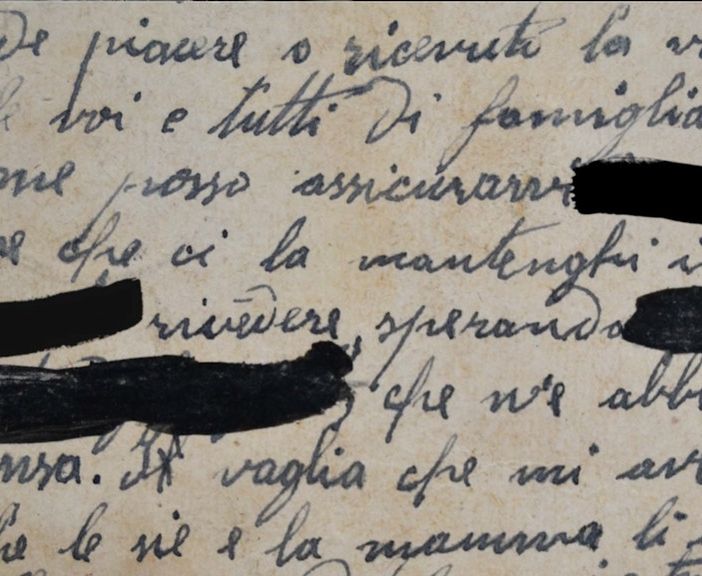 De piacere o ricevuto la
voi e tutti di famiglia
posso assicurarvi
che ci la mantenghi
rivedere, sperando
che
vaglia che mi
le e la mamma li